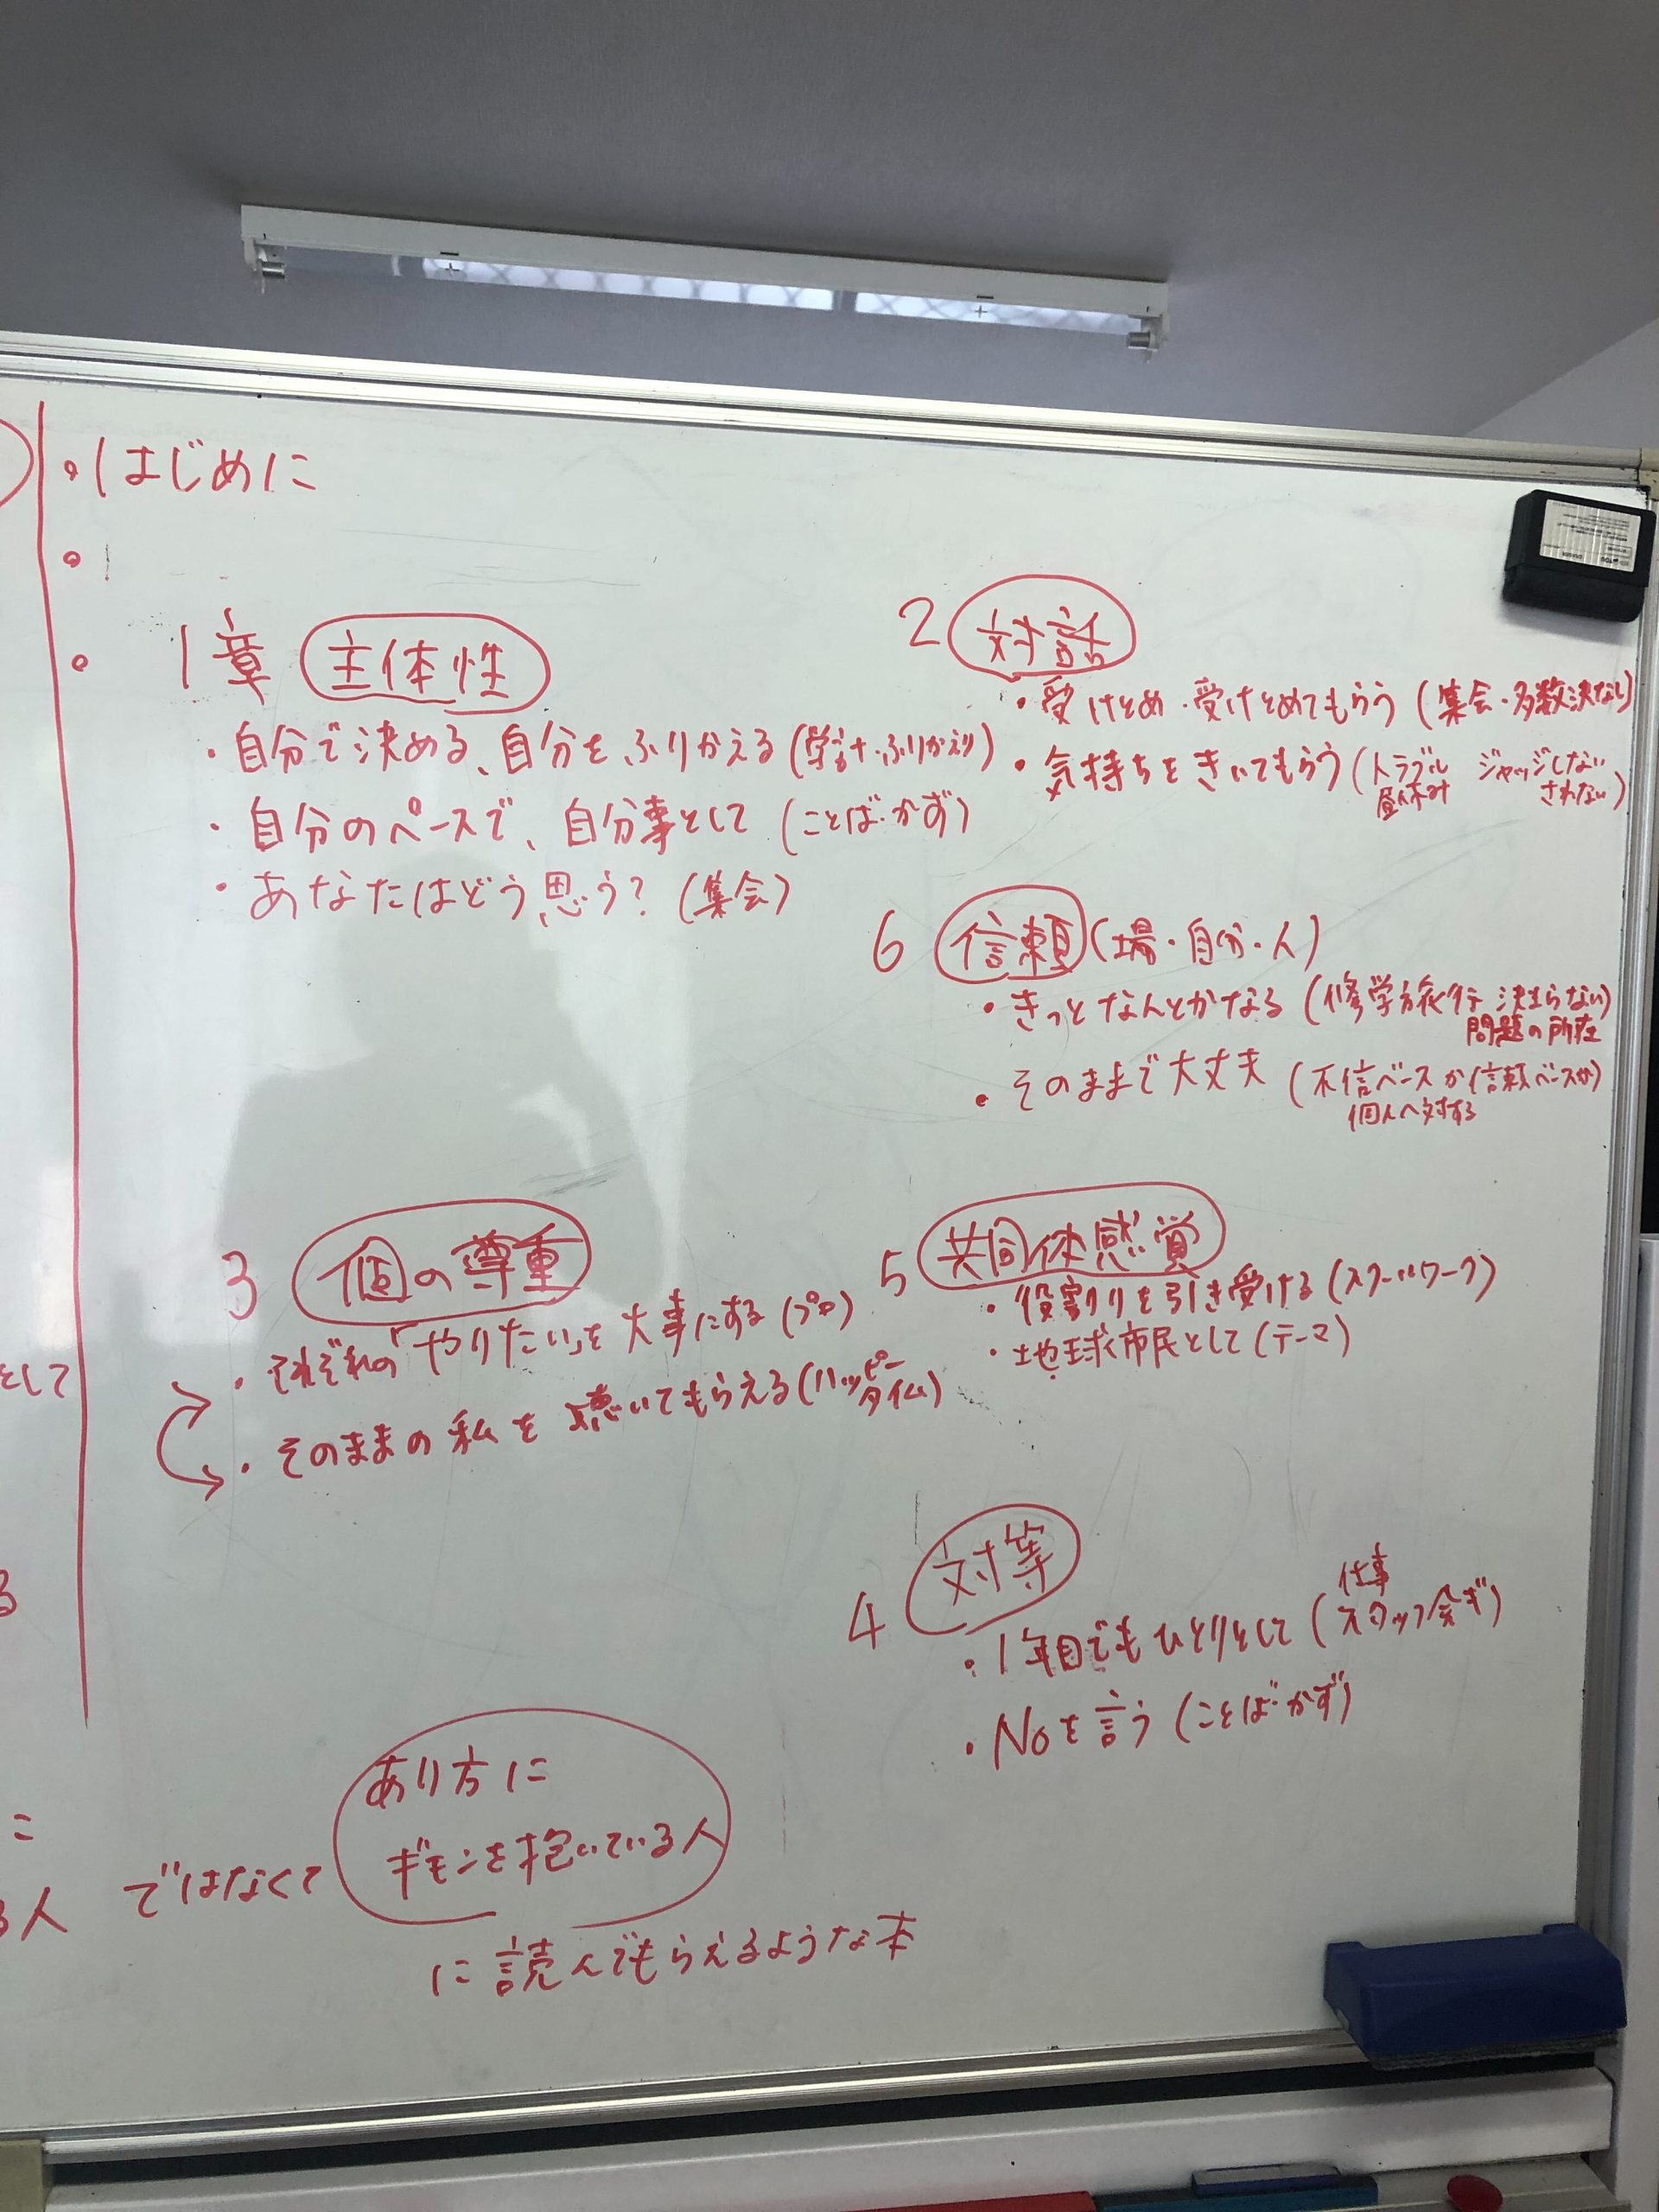 ・はじめに
・
・1章 主体性
・自分で決める、自分をふりかえる(学計・ふりかえり)
・自分のペースで、自分事として(ことば・かず)
・あなたはどう思う?(集会)
2 対話
・受けとめ・受けとめてもらう(集会・多数決なし)
・気持ちをきいてもらう(トラブル ジャッジしない
昼休み されない)
6 信頼(場・自分・人)
・きっとなんとかなる(修学旅行 決まらない)
問題の所在
・そのままで大丈夫(不信ベースか信頼ベースか)
個人へ対する
3 個の尊重
・それぞれの「やりたい」を大事にする(プロ)
・そのままの私を聴いてもらえる(ハッピー
タイム)
5 共同体感覚
・役割りを引き受ける(スクールワーク)
・地球市民として(テーマ)
4 対等
仕事
・1年目でもひとりとして(スタッフ会ギ)
・Noを言う(ことば・かず)
として
る
に
る人 ではなくて
あり方に
ギモンを抱いている人
に読んでもらえるような本